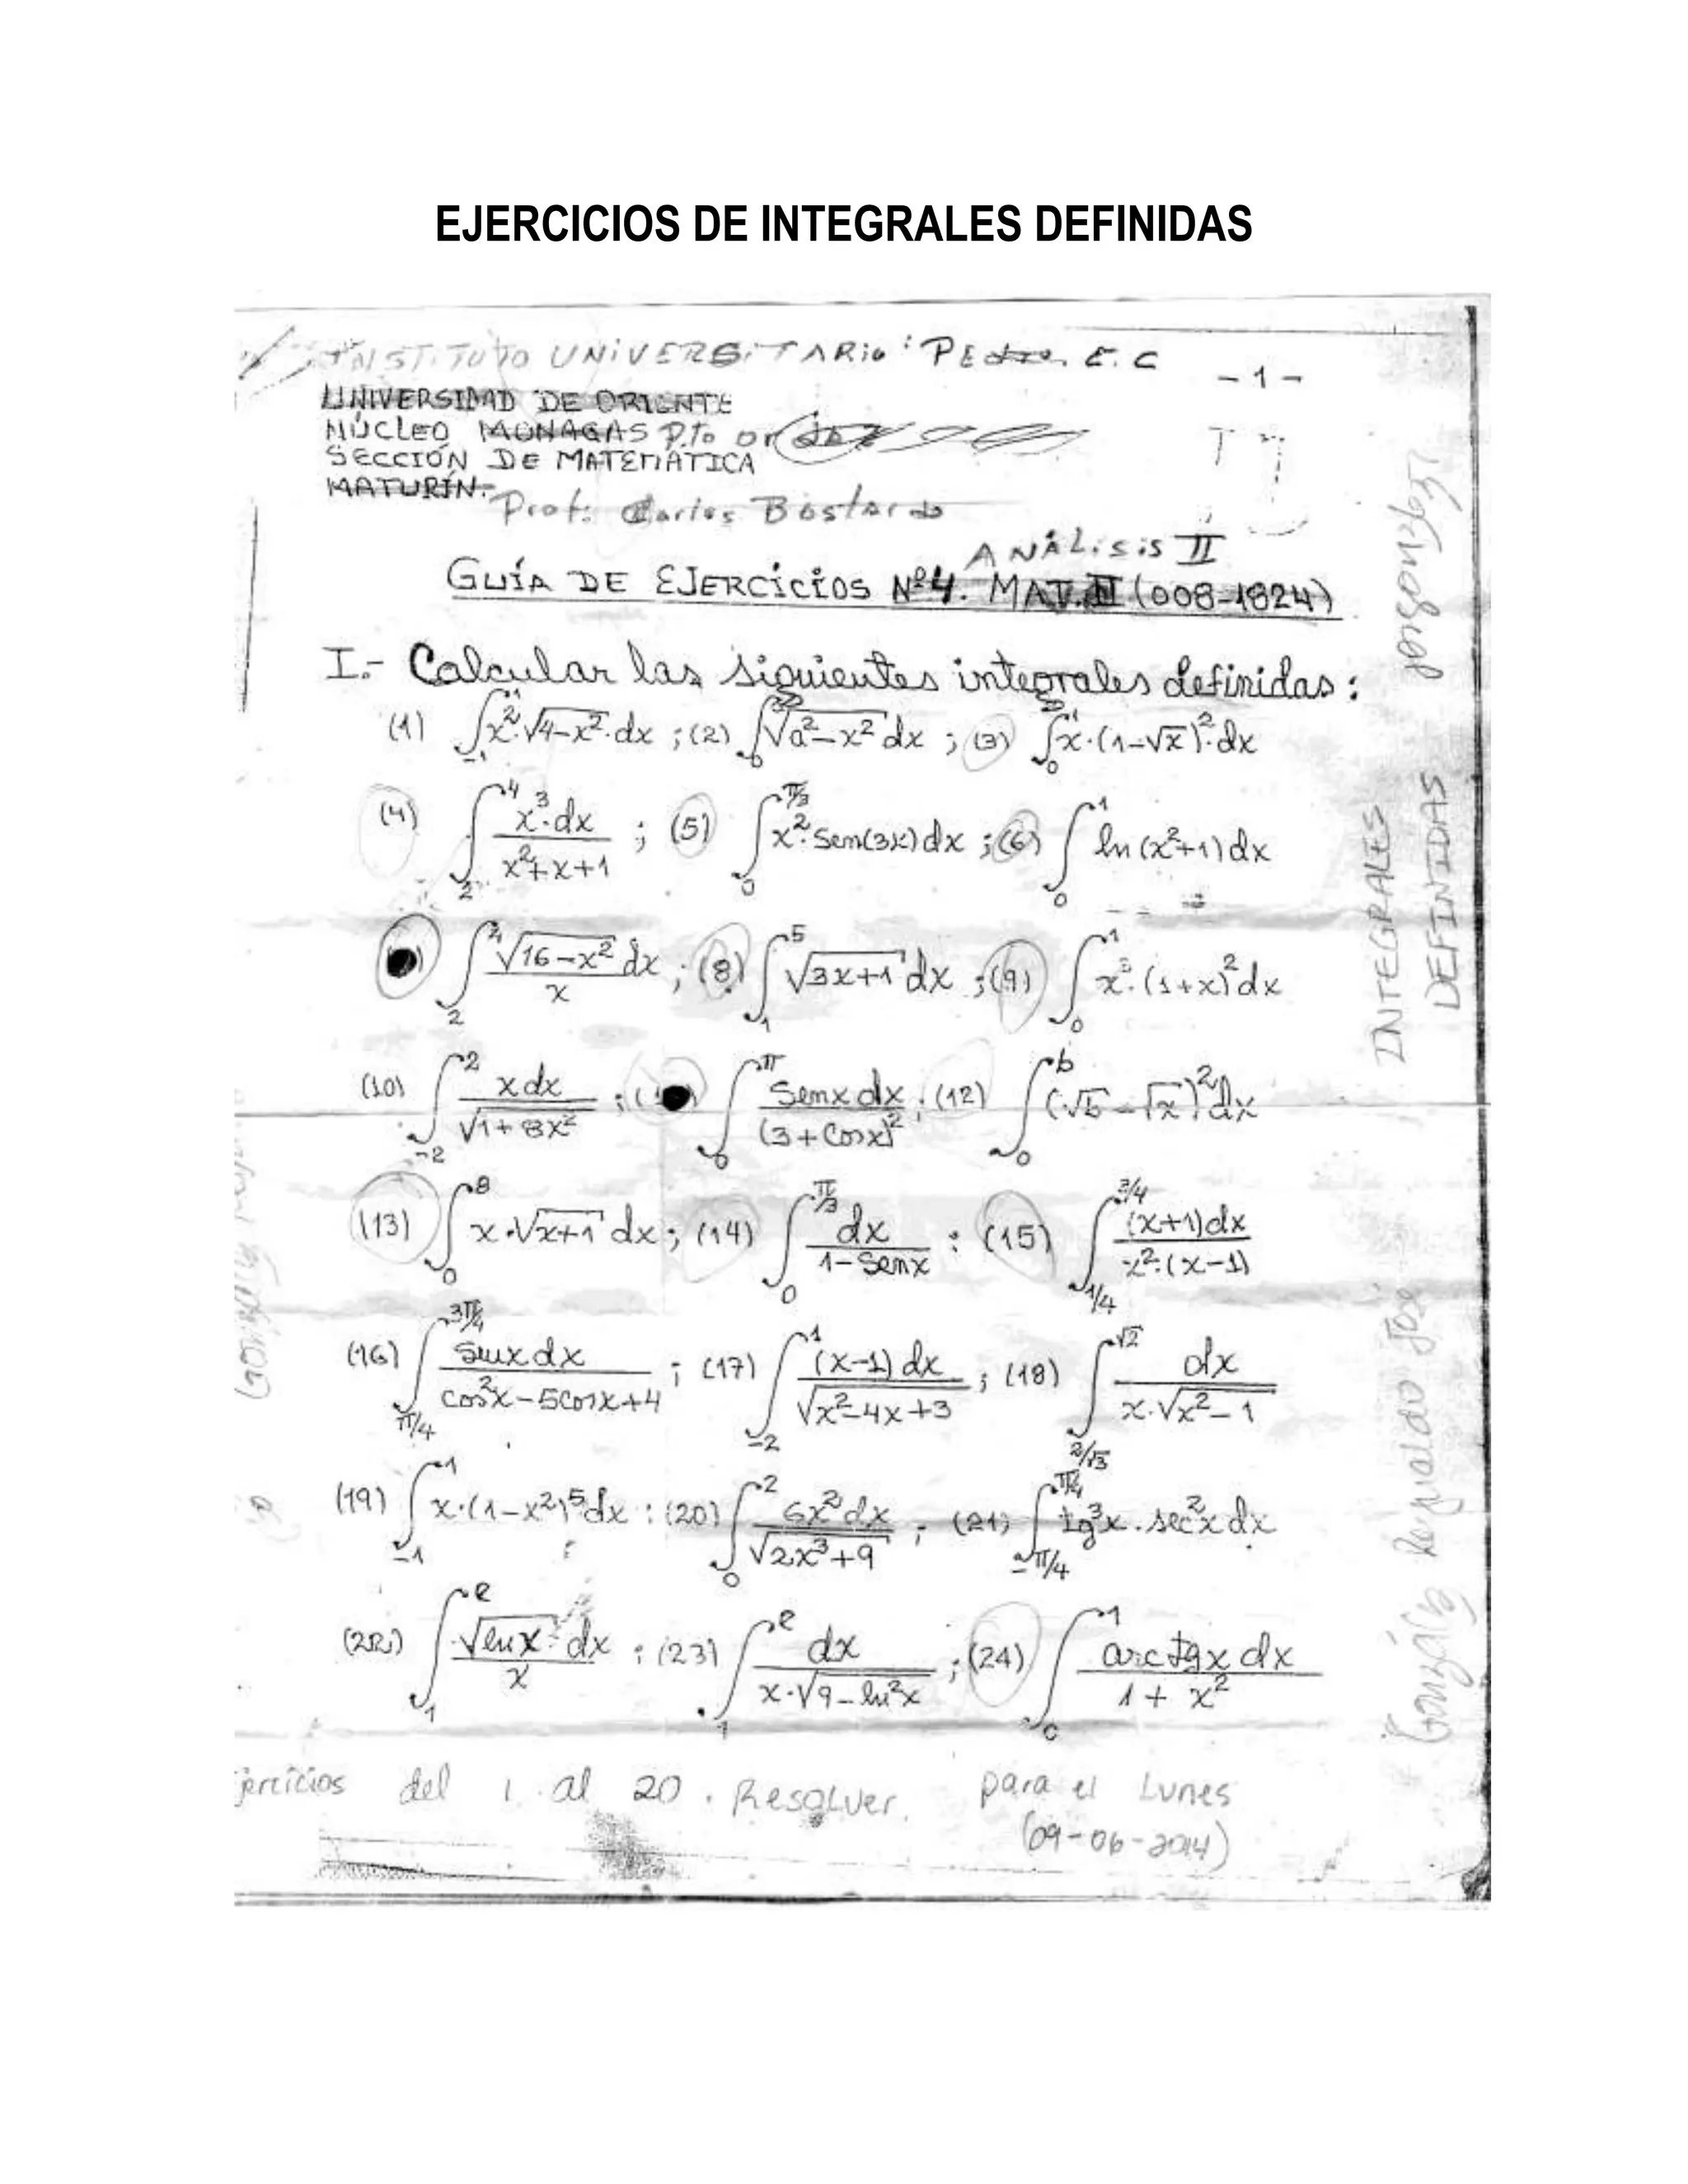 EJERCICIOS DE INTEGRALES DEFINIDAS
INSTITUTO UNIVERSITARIO: PEDRO. E. C
- 1 -
UNIVERSIDAD DE ORIENTE
NÚCLEO MONAGAS Pto
SECCIÓN DE MATEMÁTICA
MATURÍN.
Prof: Carlos Bastardo
ANÁLISIS II
GUÍA DE EJERCICIOS Nº4. MAT. II (008-1824)
I.- Calcular las siguientes integrales definidas:
(1) ∫_{-1}^{1} x²·√(4-x²)·dx ; (2) ∫_0 √(a²-x²) dx ; (3) ∫_0^1 x·(1-√x)²·dx
(4) ∫_2^4 x³·dx/(x²+x+1) ; (5) ∫_0^{π/3} x²·sen(3x)dx ; (6) ∫_0^1 ln(x²+1)dx
∫_2^4 √(16-x²) dx / x ; (8) ∫_1^5 √(3x+1) dx ; (9) ∫_0^1 x³·(1+x)² dx
(10) ∫_{-2}^2 x dx/√(1+8x²) ; ∫_0^π senx dx/(3+Cosx)² ; (12) ∫_0^b (√b-√x)² dx
(13) ∫_0^8 x·√(x+1) dx ; (14) ∫_0^{π/3} dx/(1-senx) ; (15) ∫_{1/4}^{3/4} (x+1)dx/(x²·(x-1))
(16) ∫_{π/4}^{3π/4} senx dx/(cos²x-5cosx+4) ; (17) ∫_{-2}^1 (x-1)dx/√(x²-4x+3) ; (18) ∫_{2/√3}^{√2} dx/(x·√(x²-1))
(19) ∫_{-1}^1 x·(1-x²)⁵dx : (20) ∫_0^2 6x²dx/√(2x³+9) ; (21) ∫_{-π/4}^{π/4} tg³x·sec²x dx
(22) ∫_1^e √(lnx) dx / x : (23) ∫_1^e dx/(x·√(9-ln²x)) ; (24) ∫_0^1 arctgx dx/(1+x²)
jercicios del 1 al 20. Resolver. para el Lunes
(09-06-2014)
INTEGRALES
DEFINIDAS
González Reynaldo José